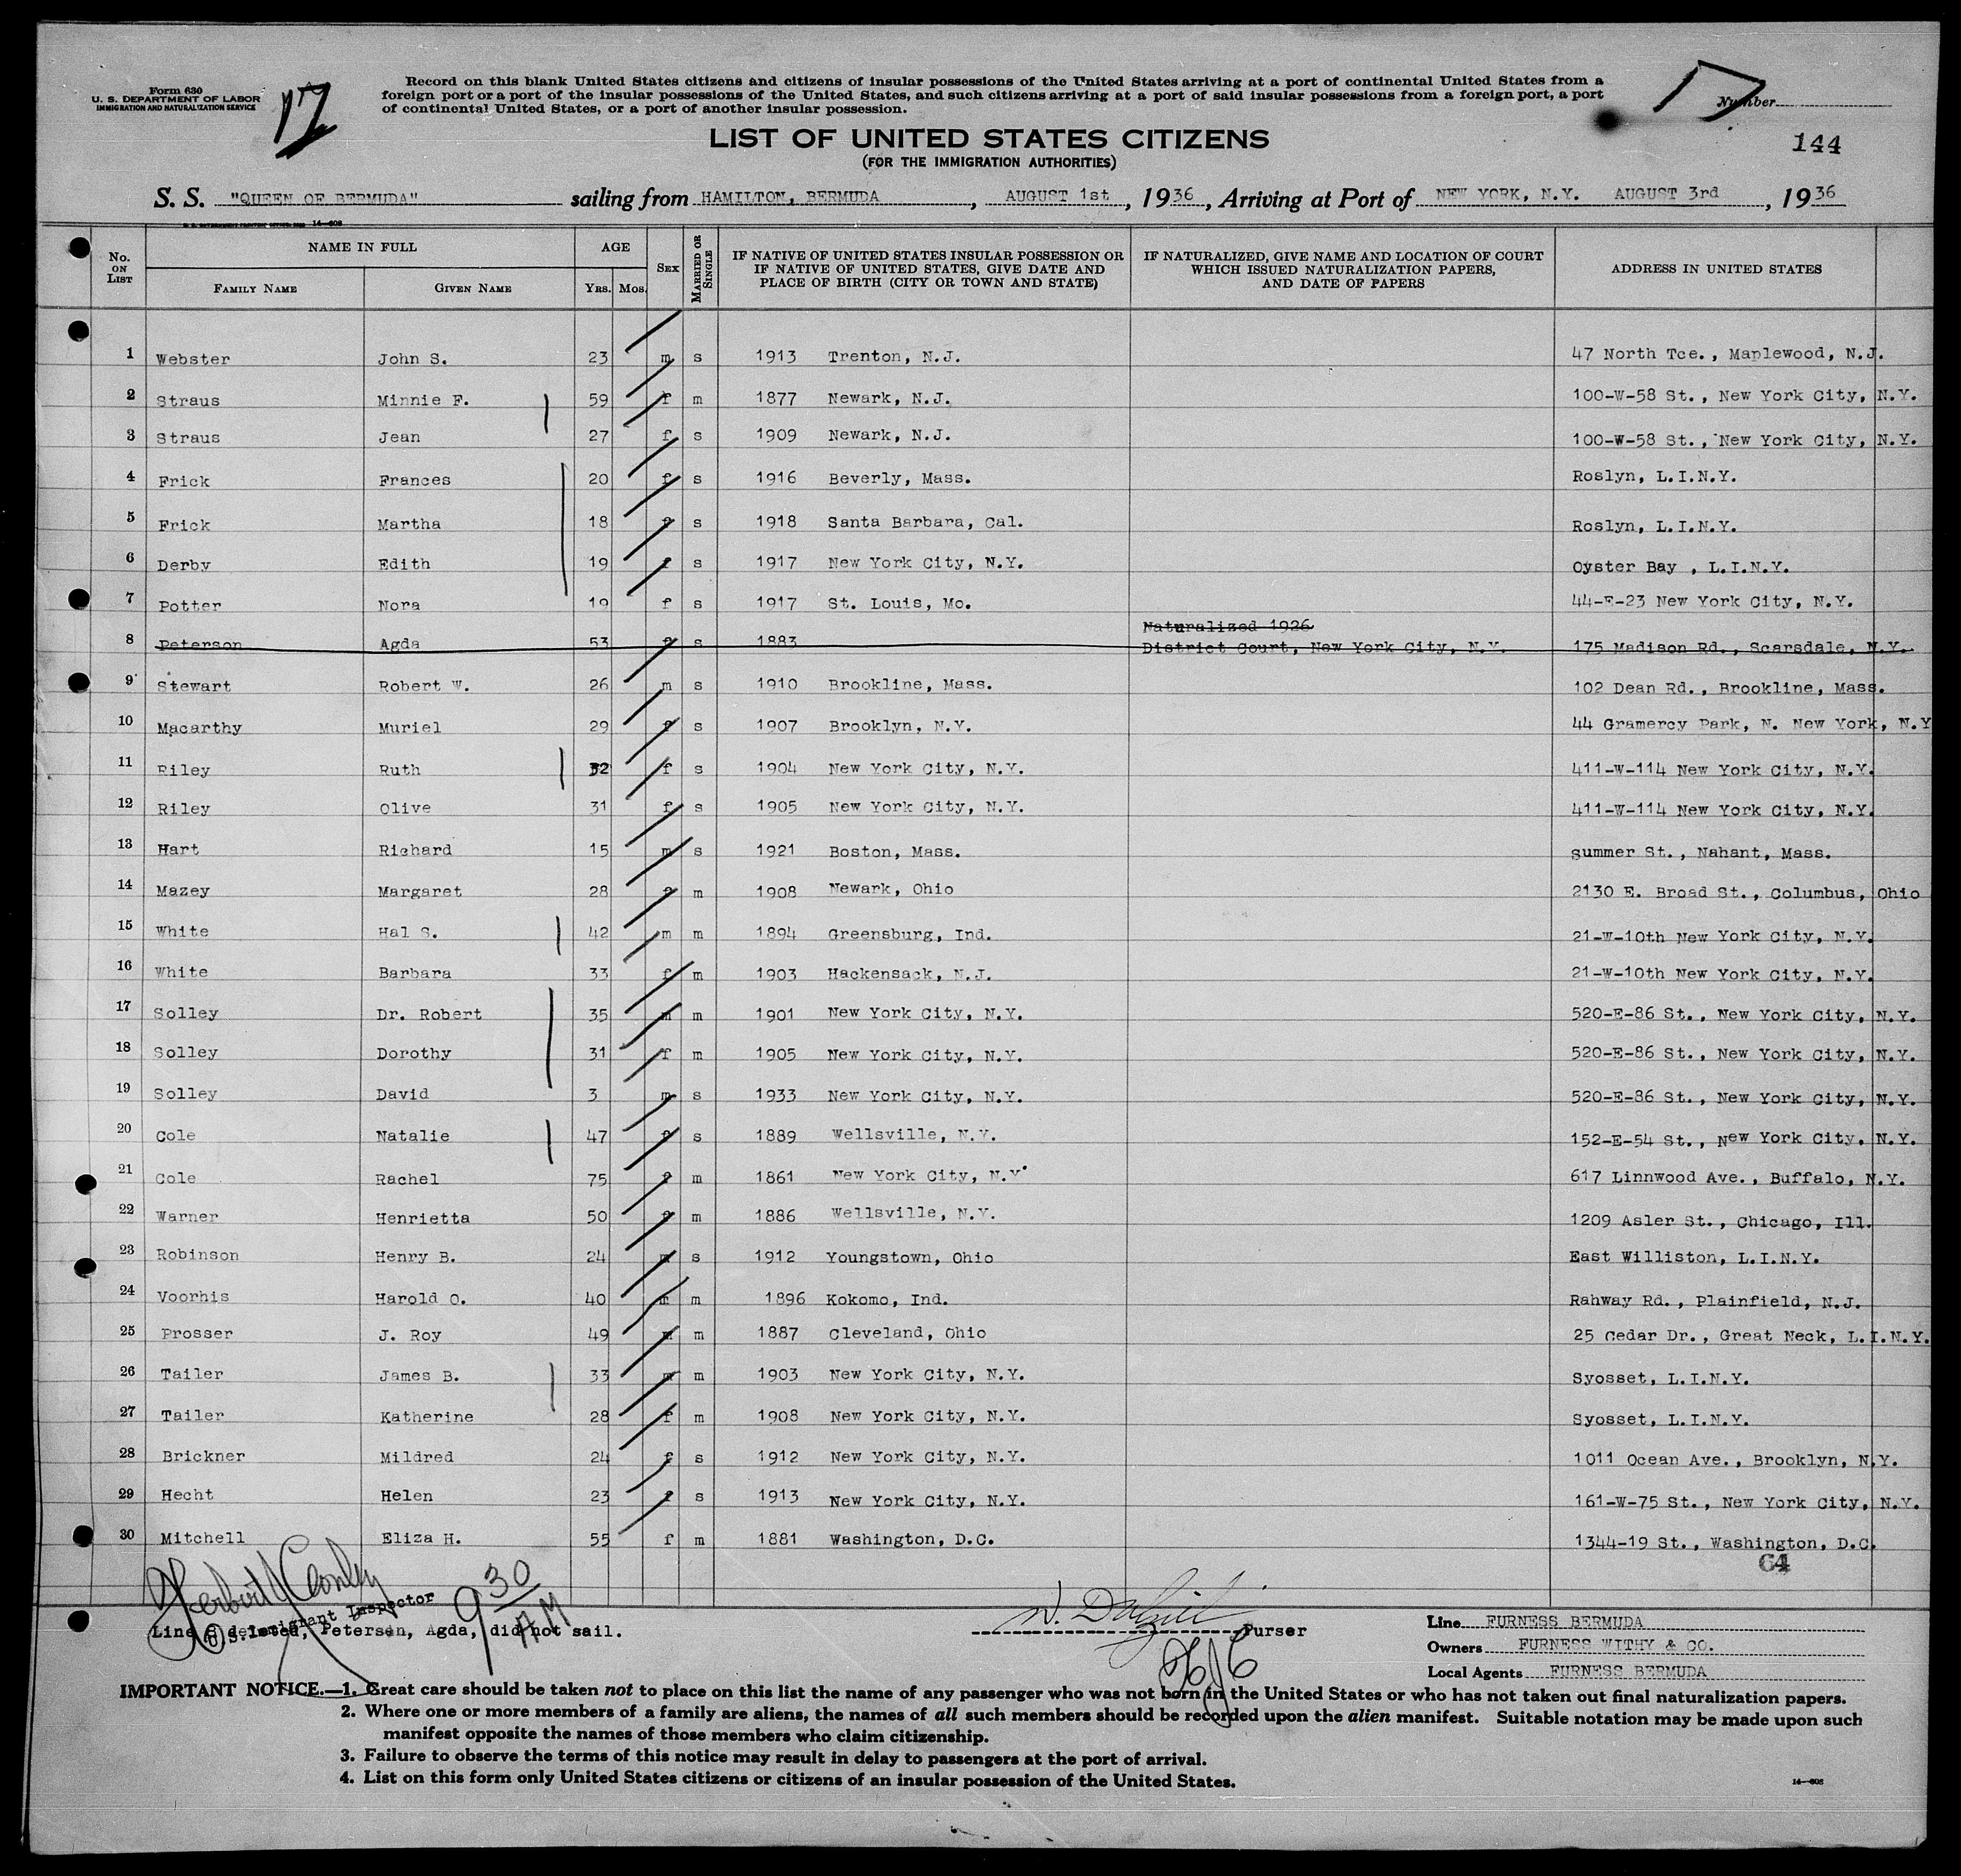 Form 630
U. S. DEPARTMENT OF LABOR
IMMIGRATION AND NATURALIZATION SERVICE
17
Record on this blank United States citizens and citizens of insular possessions of the United States arriving at a port of continental United States from a
foreign port or a port of the insular possessions of the United States, and such citizens arriving at a port of said insular possessions from a foreign port, a port
of continental United States, or a port of another insular possession.
17
Number
144
LIST OF UNITED STATES CITIZENS
(FOR THE IMMIGRATION AUTHORITIES)
S. S. "QUEEN OF BERMUDA" sailing from HAMILTON, BERMUDA, AUGUST 1st, 1936, Arriving at Port of NEW YORK, N.Y. AUGUST 3rd, 1936
14-608
No. ON LIST
NAME IN FULL
FAMILY NAME GIVEN NAME
AGE
YRS. MOS.
SEX
MARRIED OR SINGLE
IF NATIVE OF UNITED STATES INSULAR POSSESSION OR
IF NATIVE OF UNITED STATES, GIVE DATE AND
PLACE OF BIRTH (CITY OR TOWN AND STATE)
IF NATURALIZED, GIVE NAME AND LOCATION OF COURT
WHICH ISSUED NATURALIZATION PAPERS,
AND DATE OF PAPERS
ADDRESS IN UNITED STATES
1 Webster John S. 23 m s 1913 Trenton, N.J. 47 North Tce., Maplewood, N.J.
2 Straus Minnie F. 59 f m 1877 Newark, N.J. 100-W-58 St., New York City, N.Y.
3 Straus Jean 27 f s 1909 Newark, N.J. 100-W-58 St., New York City, N.Y.
4 Frick Frances 20 f s 1916 Beverly, Mass. Roslyn, L.I.N.Y.
5 Frick Martha 18 f s 1918 Santa Barbara, Cal. Roslyn, L.I.N.Y.
6 Derby Edith 19 f s 1917 New York City, N.Y. Oyster Bay , L.I.N.Y.
7 Potter Nora 19 f s 1917 St. Louis, Mo. 44-E-23 New York City, N.Y.
Naturalized 1926
8 Peterson Agda 53 f s 1883 District Court, New York City, N.Y. 175 Madison Rd., Scarsdale, N.Y.
9 Stewart Robert W. 26 m s 1910 Brookline, Mass. 102 Dean Rd., Brookline, Mass.
10 Macarthy Muriel 29 f s 1907 Brooklyn, N.Y. 44 Gramercy Park, N. New York, N.Y
11 Riley Ruth 32 f s 1904 New York City, N.Y. 411-W-114 New York City, N.Y.
12 Riley Olive 31 f s 1905 New York City, N.Y. 411-W-114 New York City, N.Y.
13 Hart Richard 15 m s 1921 Boston, Mass. summer St., Nahant, Mass.
14 Mazey Margaret 28 f m 1908 Newark, Ohio 2130 E. Broad St., Columbus, Ohio
15 White Hal S. 42 m m 1894 Greensburg, Ind. 21-W-10th New York City, N.Y.
16 White Barbara 33 f m 1903 Hackensack, N.J. 21-W-10th New York City, N.Y.
17 Solley Dr. Robert 35 m m 1901 New York City, N.Y. 520-E-86 St., New York City, N.Y.
18 Solley Dorothy 31 f m 1905 New York City, N.Y. 520-E-86 St., New York City, N.Y.
19 Solley David 3 m s 1933 New York City, N.Y. 520-E-86 St., New York City, N.Y.
20 Cole Natalie 47 f s 1889 Wellsville, N.Y. 152-E-54 St., New York City, N.Y.
21 Cole Rachel 75 f m 1861 New York City, N.Y. 617 Linnwood Ave., Buffalo, N.Y.
22 Warner Henrietta 50 f m 1886 Wellsville, N.Y. 1209 Asler St., Chicago, Ill.
23 Robinson Henry B. 24 m s 1912 Youngstown, Ohio East Williston, L.I.N.Y.
24 Voorhis Harold O. 40 m m 1896 Kokomo, Ind. Rahway Rd., Plainfield, N.J.
25 Prosser J. Roy 49 m m 1887 Cleveland, Ohio 25 Cedar Dr., Great Neck, L.I.N.Y.
26 Tailer James B. 33 m m 1903 New York City, N.Y. Syosset, L.I.N.Y.
27 Tailer Katherine 28 f m 1908 New York City, N.Y. Syosset, L.I.N.Y.
28 Brickner Mildred 24 f s 1912 New York City, N.Y. 1011 Ocean Ave., Brooklyn, N.Y.
29 Hecht Helen 23 f s 1913 New York City, N.Y. 161-W-75 St., New York City, N.Y.
30 Mitchell Eliza H. 55 f m 1881 Washington, D.C. 1344-19 St., Washington, D.C.
64
9 30 AM
U.S. Immigrant Inspector
Line 8 deleted, Peterson, Agda, did not sail.
Purser
Line FURNESS BERMUDA
Owners FURNESS WITHY & CO.
Local Agents FURNESS BERMUDA
IMPORTANT NOTICE.—1. Great care should be taken not to place on this list the name of any passenger who was not born in the United States or who has not taken out final naturalization papers.
2. Where one or more members of a family are aliens, the names of all such members should be recorded upon the alien manifest. Suitable notation may be made upon such
manifest opposite the names of those members who claim citizenship.
3. Failure to observe the terms of this notice may result in delay to passengers at the port of arrival.
4. List on this form only United States citizens or citizens of an insular possession of the United States.
14-608